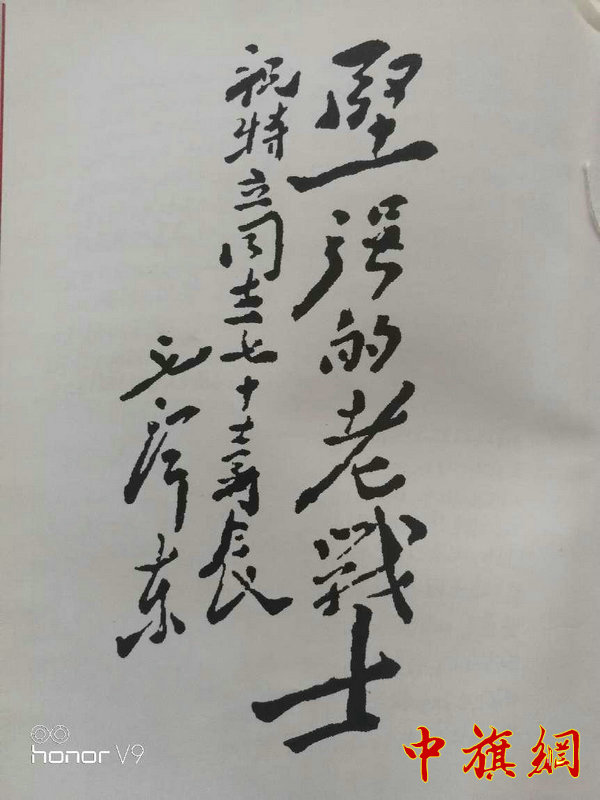 堅强的老戰士
祝特立同志七十大寿辰
毛澤东
honor V9
中旗網